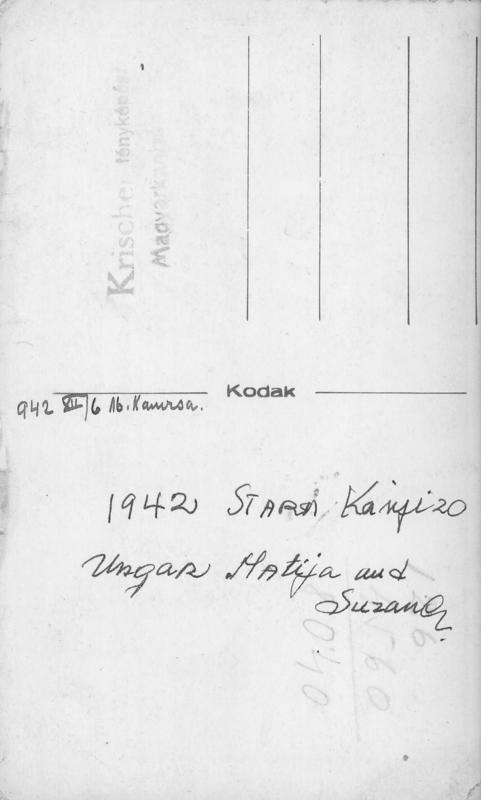 Krische fényképész
Magyarkanizsa
Kodak
942 XII/6 M. Kanizsa.
1942 STARA Kanjizo
Ungar Matija and
Suzana